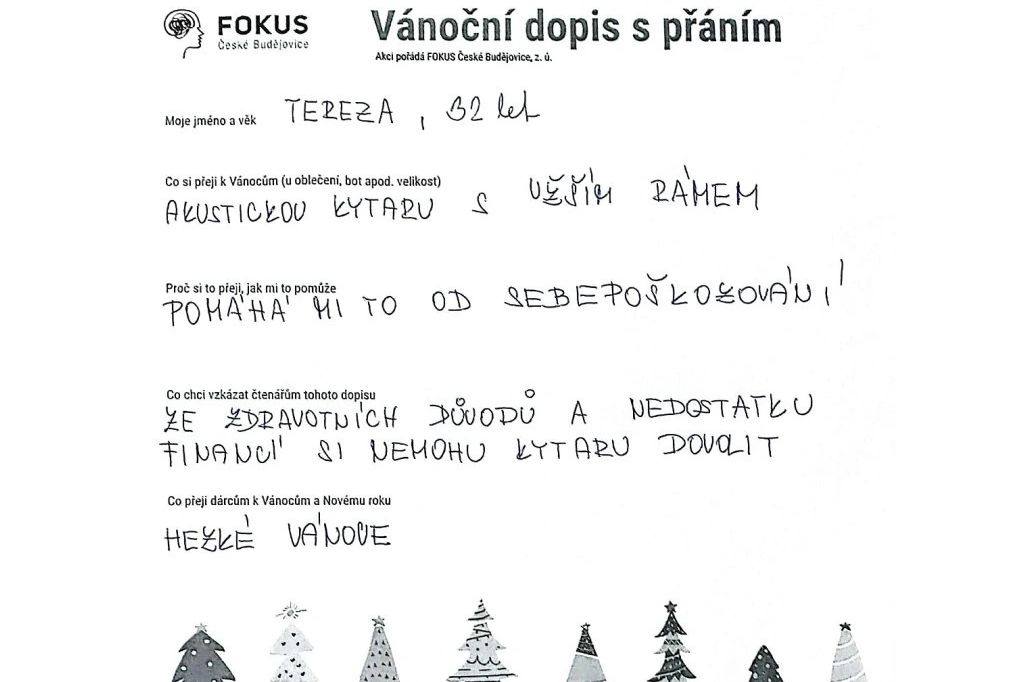 FOKUS
České Budějovice
Vánoční dopis s přáním
Akci pořádá FOKUS České Budějovice, z. ú.
Moje jméno a věk TEREZA , 32 let
Co si přeji k Vánocům (u oblečení, bot apod. velikost)
AKUSTICKOU KYTARU S UŽŠÍM RÁMEM
Proč si to přeji, jak mi to pomůže
POMÁHÁ MI TO OD SEBEPOŠKOZOVÁNÍ
Co chci vzkázat čtenářům tohoto dopisu
ZE ZDRAVOTNÍCH DŮVODŮ A NEDOSTATKU
FINANCÍ SI NEMOHU KYTARU DOVOLIT
Co přeji dárcům k Vánocům a Novému roku
HEZKÉ VÁNOCE